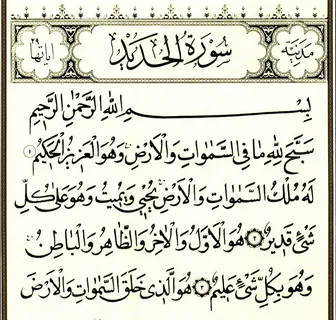 مدنيّة سُورَةُ الحَدِيدِ اياتها ٢٩
بِسْمِ اللهِ الرَّحْمٰنِ الرَّحِيمِ
سَبَّحَ لِلّٰهِ مَا فِى السَّمٰوَاتِ وَالْاَرْضِ وَهُوَ الْعَزِيزُ الْحَكِيمُ ١
لَهُ مُلْكُ السَّمٰوَاتِ وَالْاَرْضِ يُحْيِى وَيُمِيتُ وَهُوَ عَلٰى كُلِّ
شَىْءٍ قَدِيرٌ ٢ هُوَ الْاَوَّلُ وَالْاٰخِرُ وَالظَّاهِرُ وَالْبَاطِنُ
وَهُوَ بِكُلِّ شَىْءٍ عَلِيمٌ ٣ هُوَ الَّذِى خَلَقَ السَّمٰوَاتِ وَالْاَرْضَ